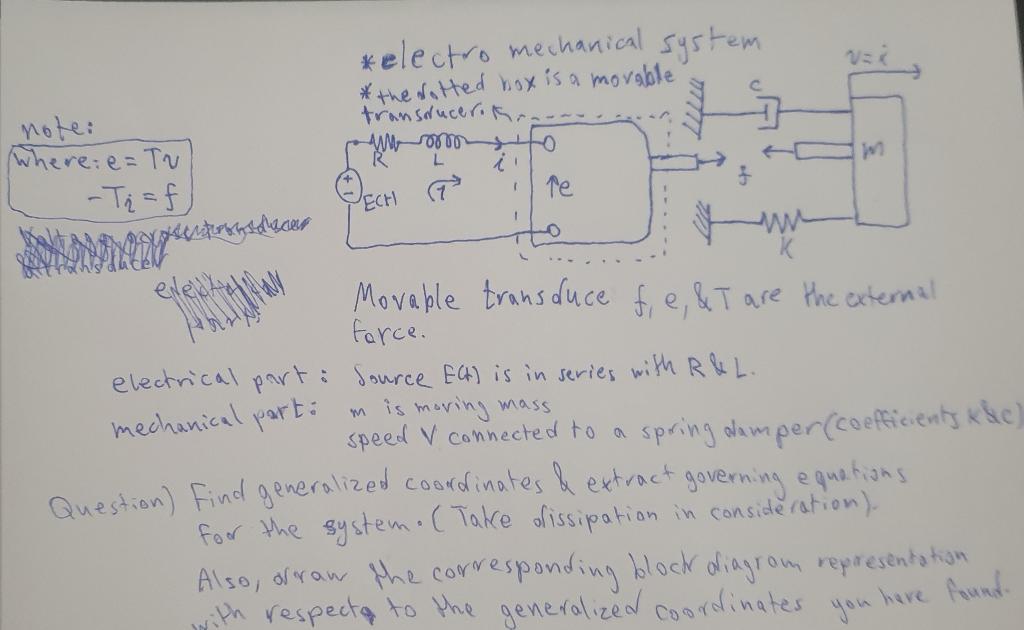 *electro mechanical system
*the dotted box is a movable
transducer.
note:
where: e = Tv
-Ti = f
transducer
R
L
i
E(t)
1
e
f
c
v=ẋ
m
K
Movable transduce f, e, & T are the external
force.
electrical part: Source E(t) is in series with R & L.
mechanical part: m is moving mass
speed V connected to a spring damper (coefficients K & c)
Question) Find generalized coordinates & extract governing equations
for the system. (Take dissipation in consideration).
Also, draw the corresponding block diagram representation
with respect to the generalized coordinates you have found.